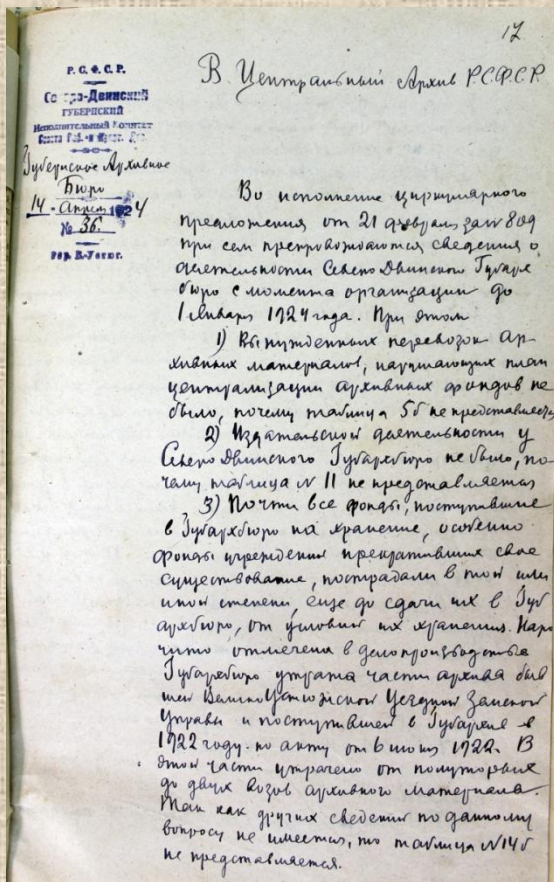 17
В Центральный Архив Р.С.Ф.С.Р.
Р. С. Ф. С. Р.
Северо-Двинский
ГУБЕРНСКИЙ
Исполнительный Комитет
Губернское Архивное
Бюро
14 - Апреля 1924
№ 36.
гор. В.-Устюг.
Во исполнение циркулярного
предложения от 21 февраля за № 809
при сем препровождаются сведения о
деятельности СевероДвинского Губарх
бюро с момента организации до
1 Января 1924 года. При этом
1) Вынужденных перевозок ар-
хивных материалов, нарушающих план
централизации архивных фондов не
было, почему таблица 5б не представляется
2) Издательской деятельности у
СевероДвинского Губархбюро не было, по-
чему таблица № 11 не представляется
3) Почти все фонды, поступившие
в Губархбюро на хранение, особенно
фонды учреждений прекративших свое
существование, пострадали в той или
иной степени, еще до сдачи их в Губ
архбюро, от условий их хранения. Наро
чито отмечена в делопроизводстве
Губархбюро утрата части архива быв
шей ВеликоУстюжской Уездной Земской
Управы и поступившей в Губархив в
1922 году по акту от 6 июня 1922. В
этой части утрачено от полуторых
до двух возов архивного материала.
Так как других сведений по данному
вопросу не имеется, то таблица № 14б
не представляется.